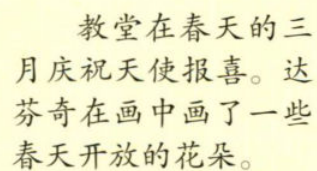 教堂在春天的三
月庆祝天使报喜。达
芬奇在画中画了一些
春天开放的花朵。